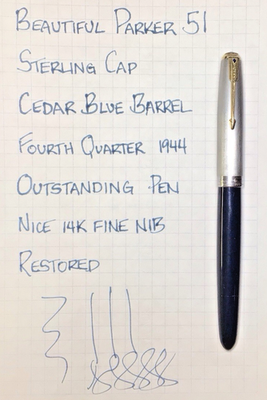 Beautiful Parker 51
Sterling Cap
Cedar Blue Barrel
Fourth Quarter 1944
Outstanding Pen
Nice 14K Fine Nib
Restored